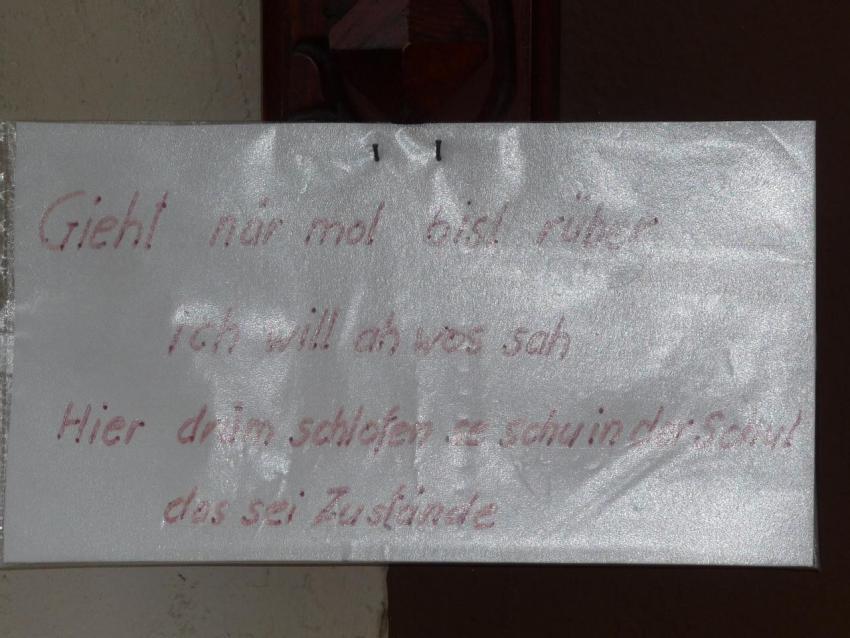 Gieht når mol bisl rüber
ich will ah wos sah
Hier dråm schlofen se schu in der Schul
das sei Zustände